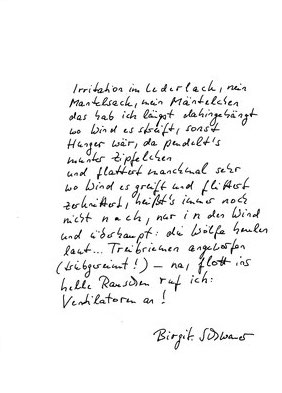 Irritation im Lederlack, nein
Mantelsack, mein Mäntelchen
das hab ich längst dahingehängt
wo Wind es streift, sonst
Hunger wär, da pendelt's
munter Zipfelchen
und flattert manchmal sehr
wo Wind es greift und flittert
zerknittert, heißt's immer noch
nicht nach, nur in den Wind
und überhaupt: die Wölfe heulen
laut... Treibriemen angeworfen
(trübgereimt!) – na, flott ins
helle Rauschen ruf ich:
Ventilatoren an!
Birgit Schwaner